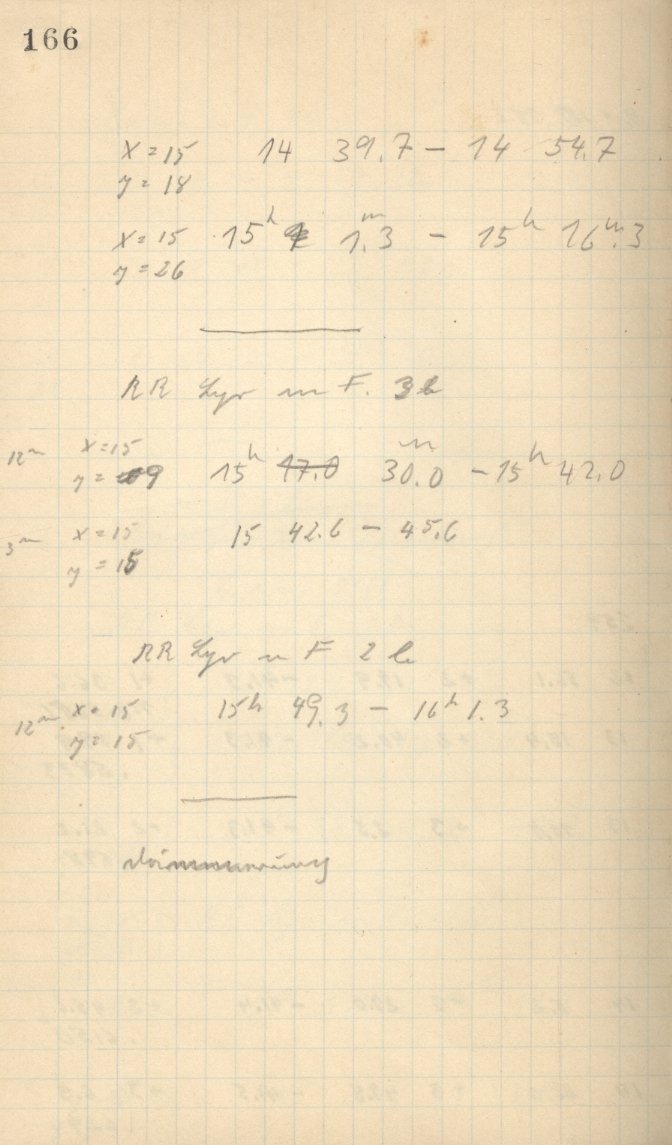 166
x = 15 14 39.7 – 14 54.7
y = 18
x = 15 15h 1m.3 – 15h 16m.3
y = 26
RR Lyr in F. 3b
12m x = 15
y = 9 15h 17.0 30.0m – 15h 42.0
3m x = 15 15 42.6 – 45.6
y = 15
RR Lyr in F 2b
12m x = 15 15h 49.3 – 16h 1.3
y = 15
Dämmerung